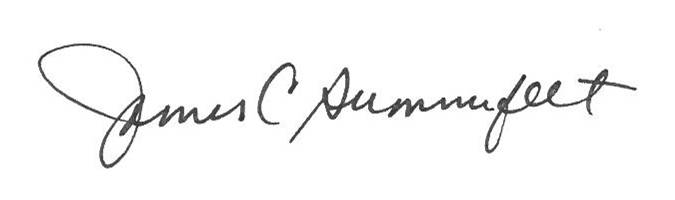 James C Summerfelt